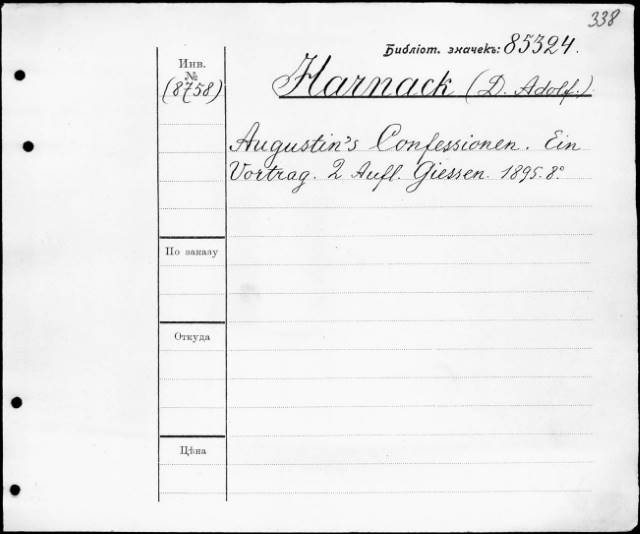 338
Библіот. значекъ: 85324.
Инв.
№
(8758)
Harnack (D. Adolf.)
Augustin's Confessionen. Ein
Vortrag. 2 Aufl. Giessen. 1895. 8º
По заказу
Откуда
Цѣна